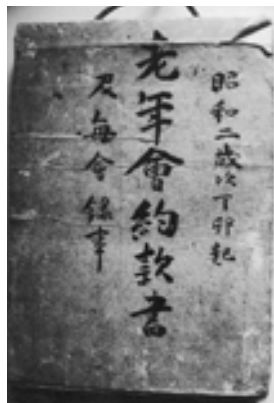 昭和二歳次丁卯起
老年會約款書
及每會錄事